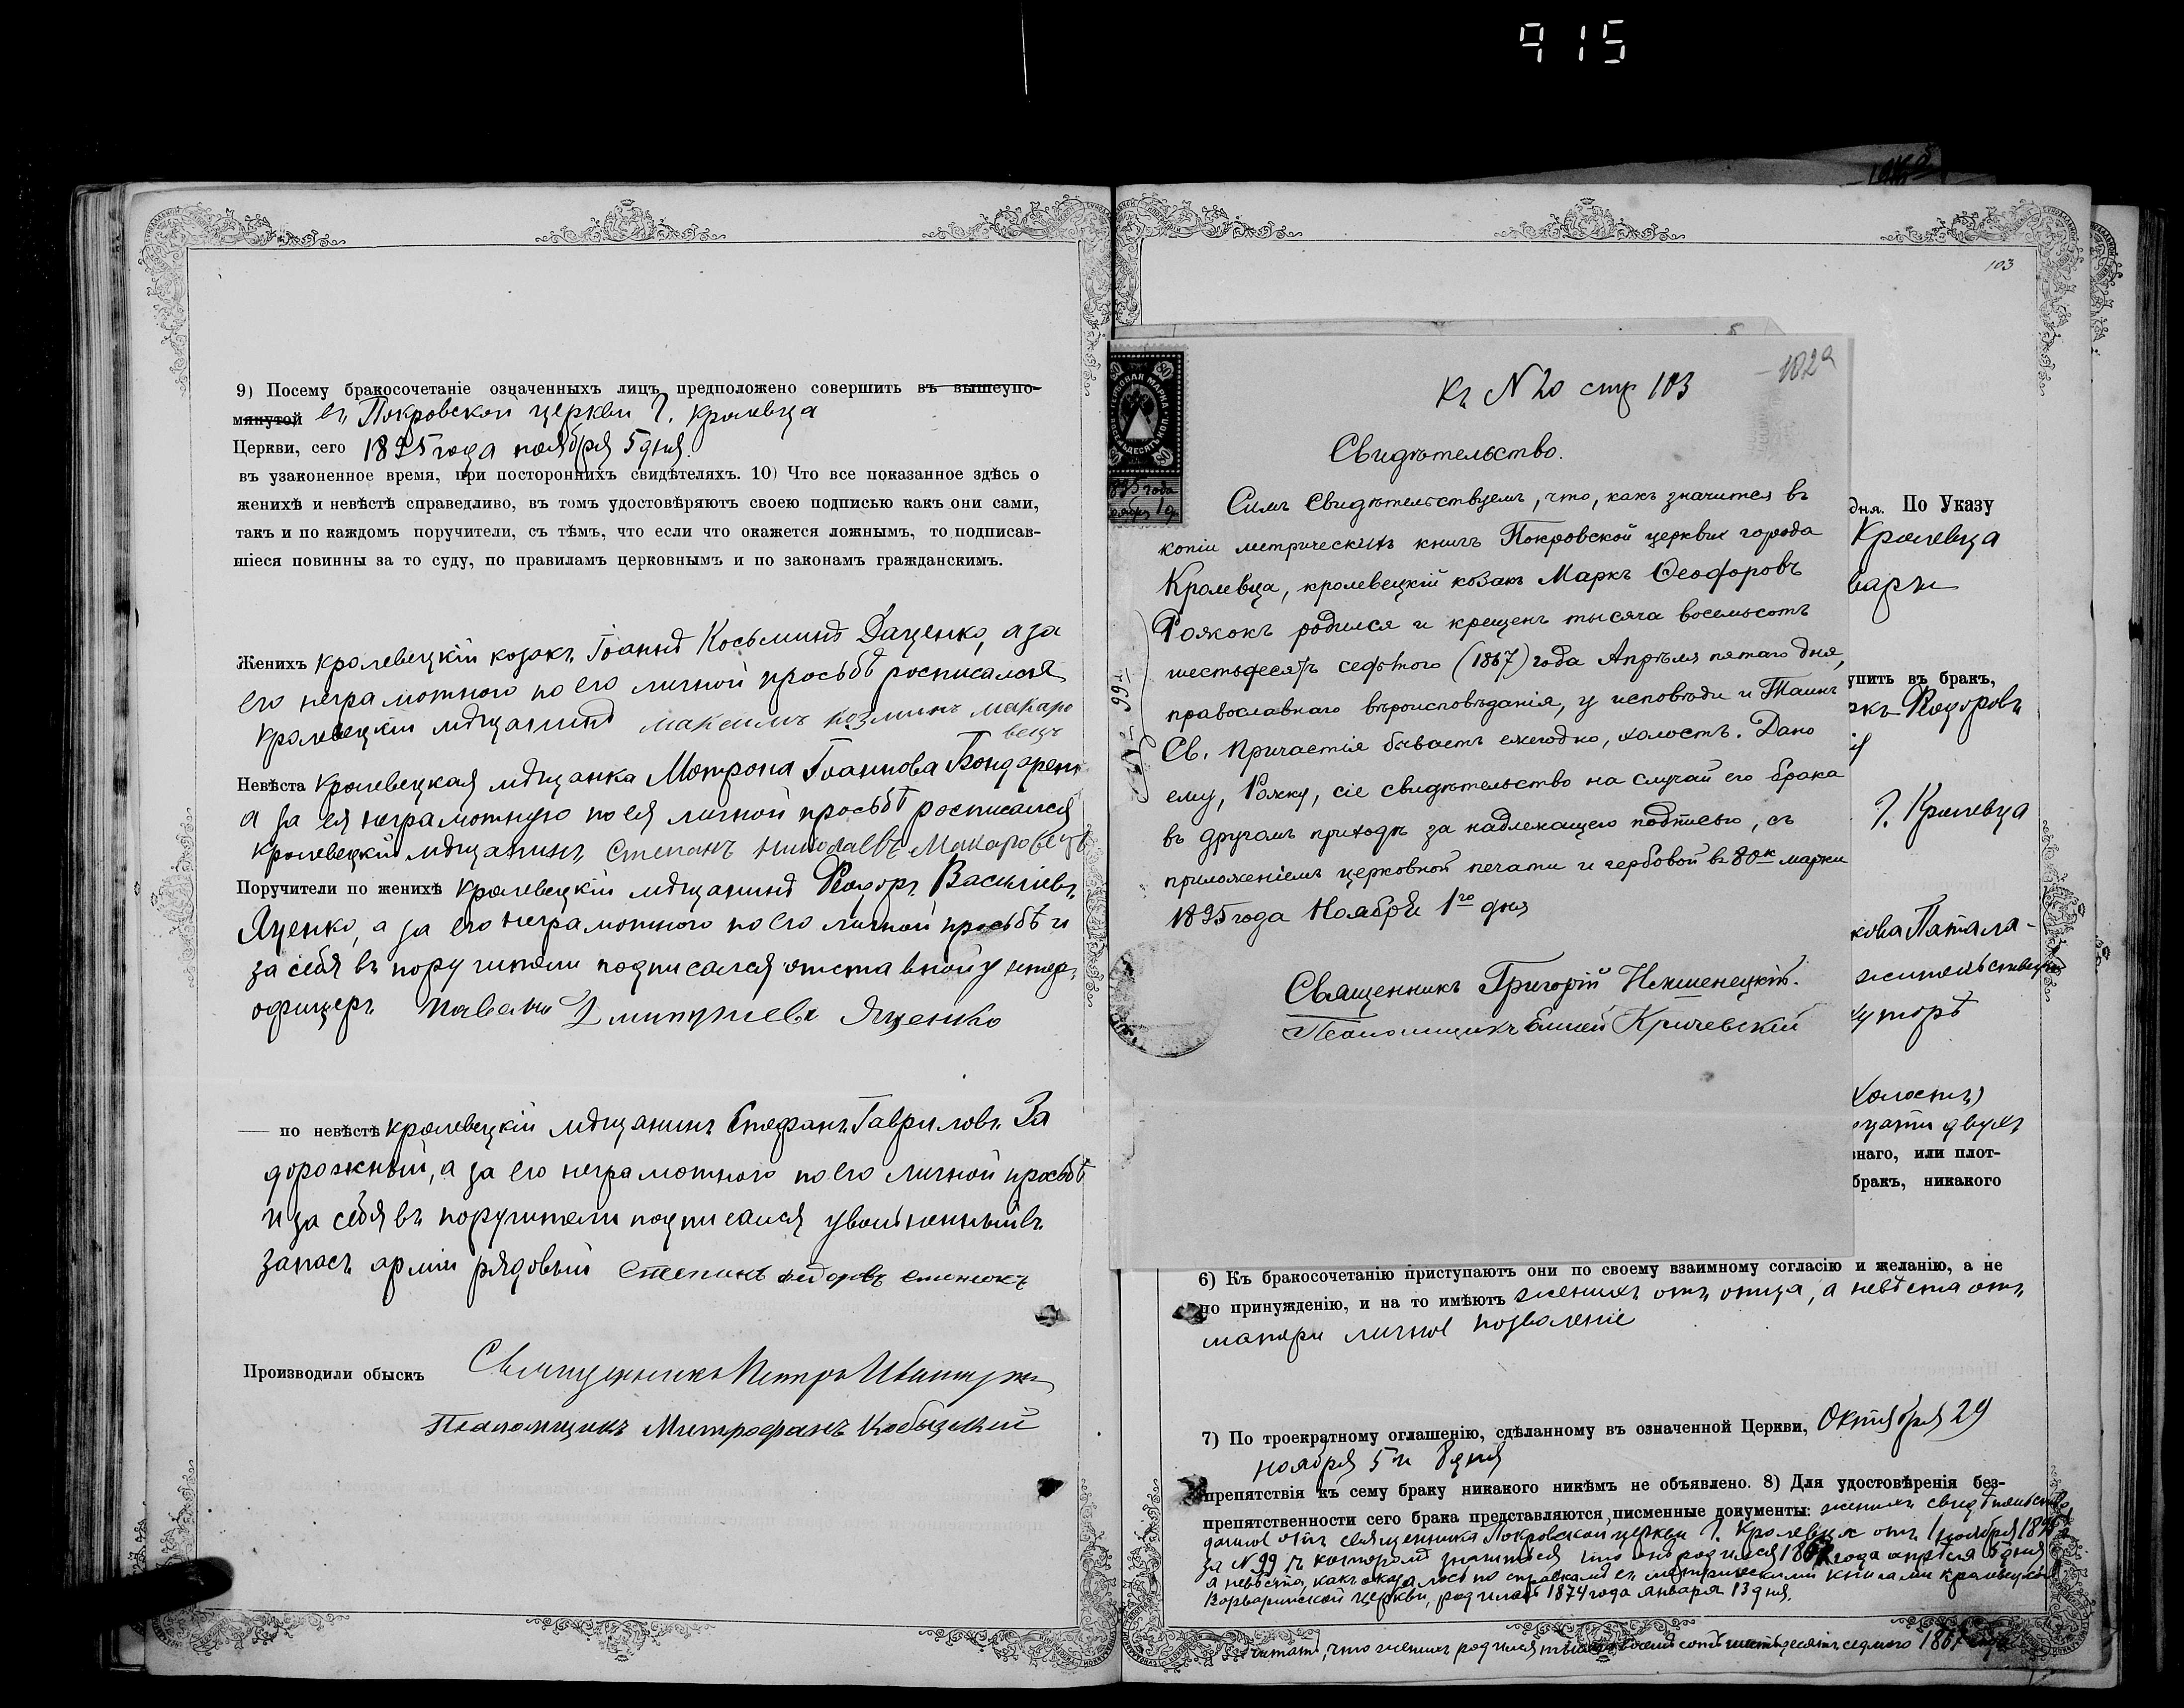 915
9) Посему бракосочетаніе означенныхъ лицъ предположено совершить въ вышеупо-
мянутой въ Покровской церкви г. Кролевца
Церкви, сего 1895 года ноября 5 дня.
въ узаконенное время, при постороннихъ свидѣтеляхъ. 10) Что все показанное здѣсь о
женихѣ и невѣстѣ справедливо, въ томъ удостовѣряютъ своею подписью какъ они сами,
такъ и по каждомъ поручители, съ тѣмъ, что если что окажется ложнымъ, то подписав-
шіеся повинны за то суду, по правиламъ церковнымъ и по законамъ гражданскимъ.
Женихъ кролевецкій козакъ Іоаннъ Косьминъ Даценко, а за
его неграмотного по его личной просьбѣ росписался
кролевецкій мѣщанинъ максимъ козминъ макаро
вецъ
Невѣста кролевецкая мѣщанка Мотрона Іоаннова Бондаренк
а за ея неграмотную по ея личной просьбѣ росписался
кролевецкій мѣщанинъ Степанъ николаевъ Макаровецъ
Поручители по женихѣ кролевецкій мѣщанинъ Ѳеодоръ Васильевъ
Яценко, а за его неграмотного по его личной просьбѣ и
за себя въ поручители подписался отставной унтер-
офицеръ Павелъ Дмитріевъ Яценко
— по невѣстѣ кролевецкій мѣщанинъ Стефанъ Гавриловъ За
дорожный, а за его неграмотного по его личной просьбѣ
и за себя въ поручители подписался уволненный въ
запасъ арміи рядовый Степанъ федоровъ
Производили обыскъ Священникъ Петръ
Псаломщикъ Митрофанъ Кобыцкій
103
102а
Къ N 20 стр 103
Свидѣтельство.
ГЕРБОВАЯ МАРКА
80
1895 года
ноября 1 дн
№ 99
Симъ свидѣтельствуемъ, что, какъ значится въ
копіи метрическихъ книгъ Покровской церкви города
Кролевца, кролевецкій козакъ Маркъ Ѳеодоровъ
Рожокъ родился и крещенъ тысяча восемьсотъ
шестьдесятъ седьмого (1867) года Апрѣля пятаго дня,
православнаго вѣроисповѣданія, у исповѣди и Таинъ
Св. Причастія бываетъ ежегодно, холостъ. Дано
ему, Рожку, сіе свидѣтельство на случай его брака
въ другомъ приходѣ за надлежащею подписью, съ
приложеніемъ церковной печати и гербовой въ 80к марки
1895 года Ноября 1го дня
Священникъ Григорій
Псаломщикъ Елисей Кричевскій
дня. По Указу
Кролевца
вары
упить въ бракъ,
ркъ Ѳеодоровъ
г. Кролевца
кова Патала-
жительствующ
хуторѣ
холостъ,
цати двухъ
знаго, или плот-
бракъ, никакого
6) Къ бракосочетанію приступаютъ они по своему взаимному согласію и желанію, а не
по принужденію, и на то имѣютъ женихъ отъ отца, а невѣста отъ
матери личное позволеніе
7) По троекратному оглашенію, сдѣланному въ означенной Церкви, Октября 29
ноября 5 и 8 дня
препятствія къ сему браку никакого никѣмъ не объявлено. 8) Для удостовѣренія без-
препятственности сего брака представляются писменные документы: женихъ свидѣтельство
данное отъ священника Покровской церкви г. Кролевца отъ 1 ноября 1895
за N 99 въ которомъ значится что онъ родился 1867 года апрѣля 5 дня
а невѣста, какъ оказалось по справкамъ съ метрическими книгами кролевецкой
Варваринской церкви, родилась 1874 года января 13 дня.
Читать, что женихъ родился тысяча восемьсотъ шестьдесятъ седмого 1867 года